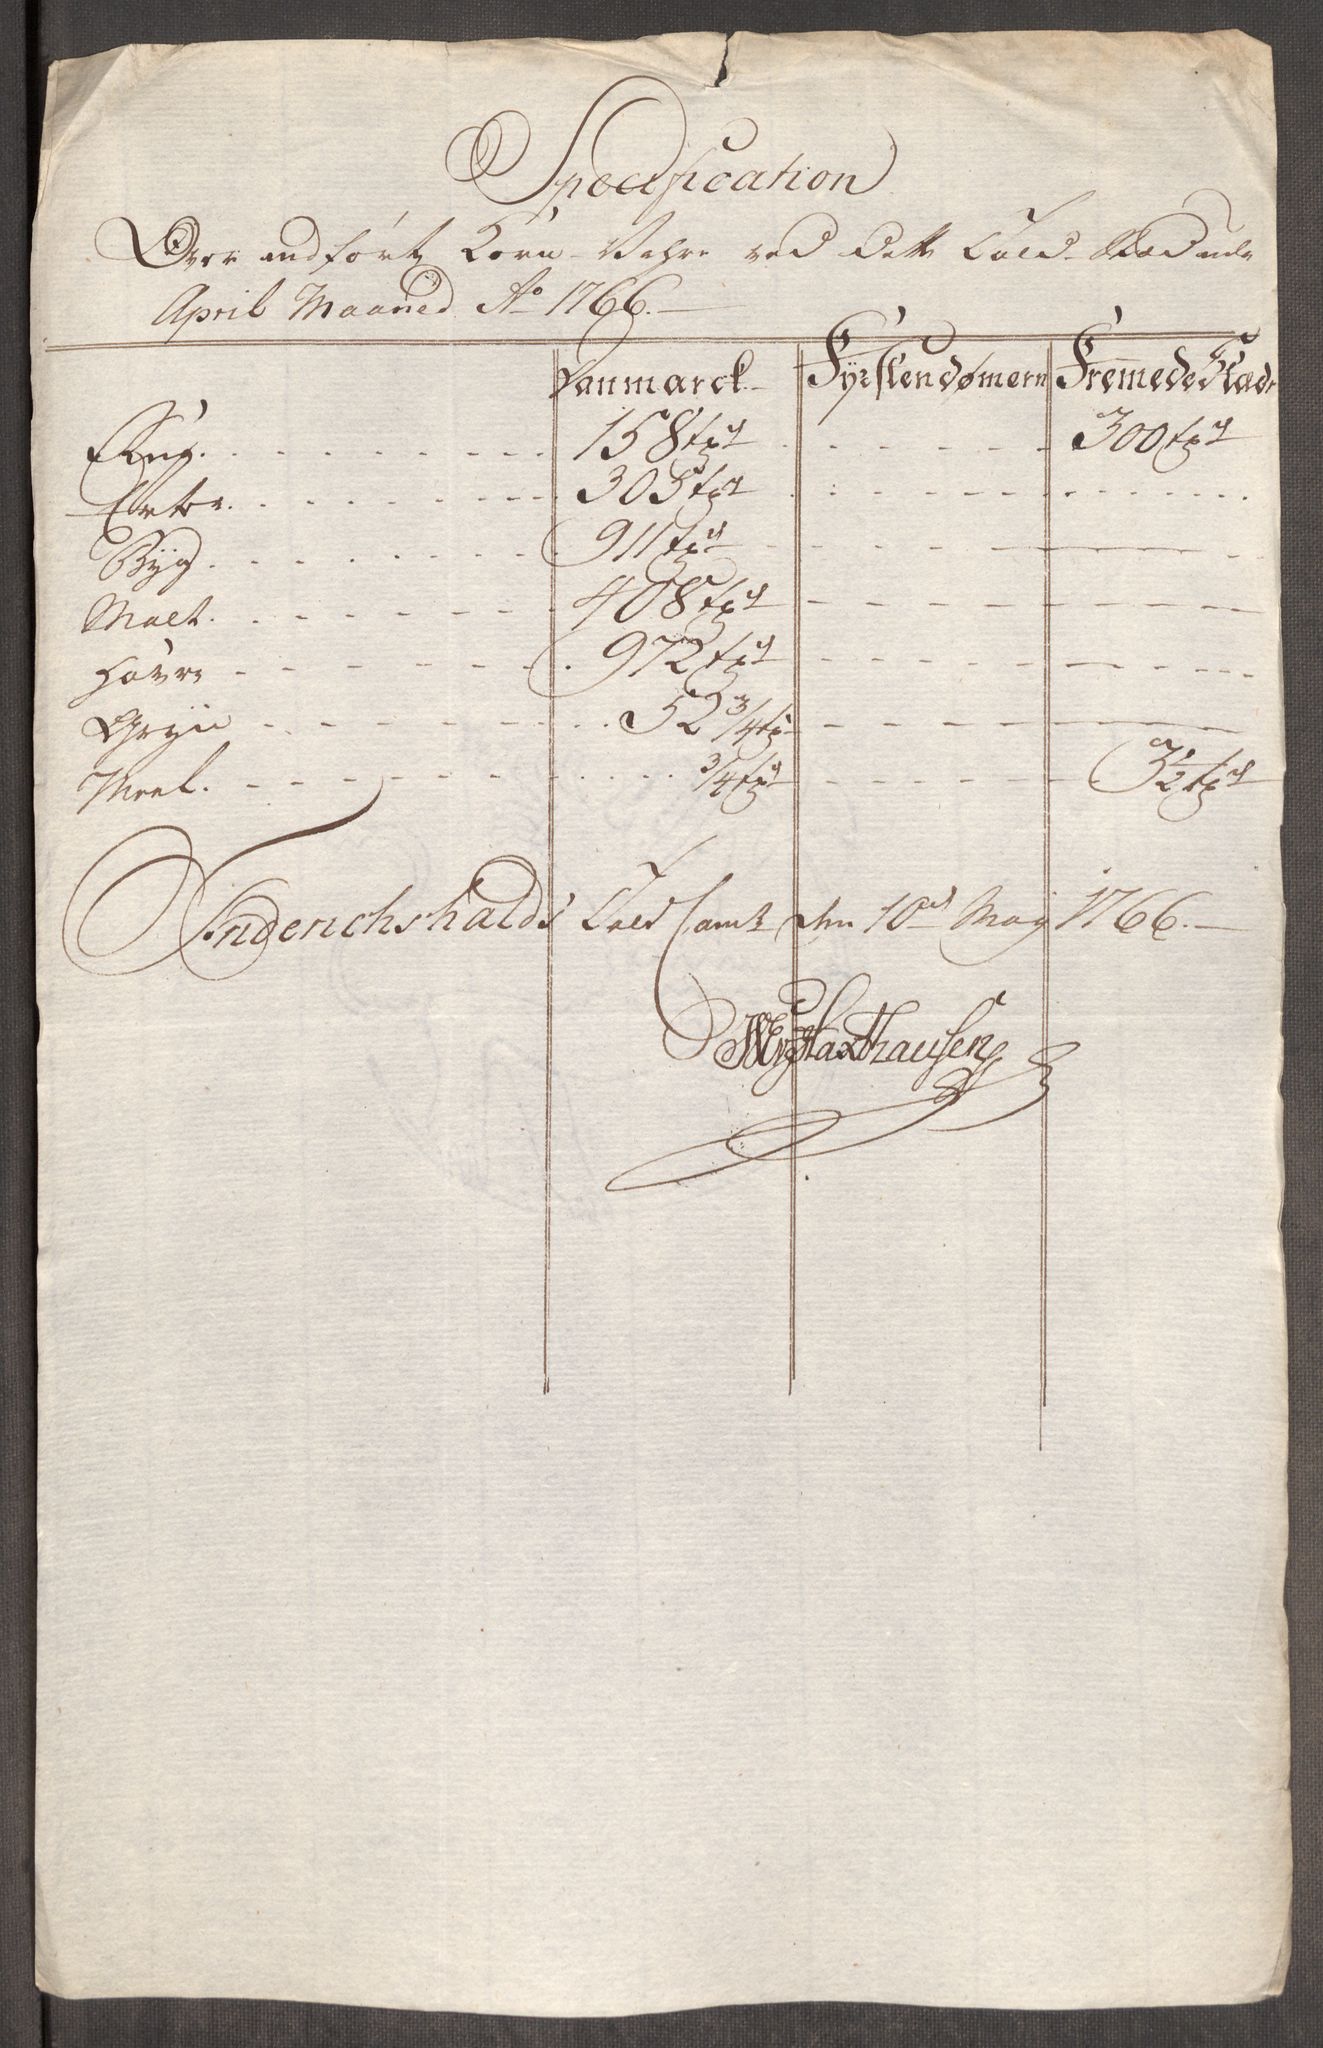 Specification
Over indført Korn-Vahre ved dette Told-Stæd udi
April Maaned Ao 1766.
Danmarck Fyrstendømern Fremede Stæde
Rug. 158 tr 300 tr
Erter. 303 tr
Byg. 911 tr
Malt. 408 tr
Havre 972 tr
Gryn 52 3/4 tr
Meel. 3/4 tr 3 1/2 tr
Friderichshalds Told Cam̅r den 10de May 1766.
Haxthausen